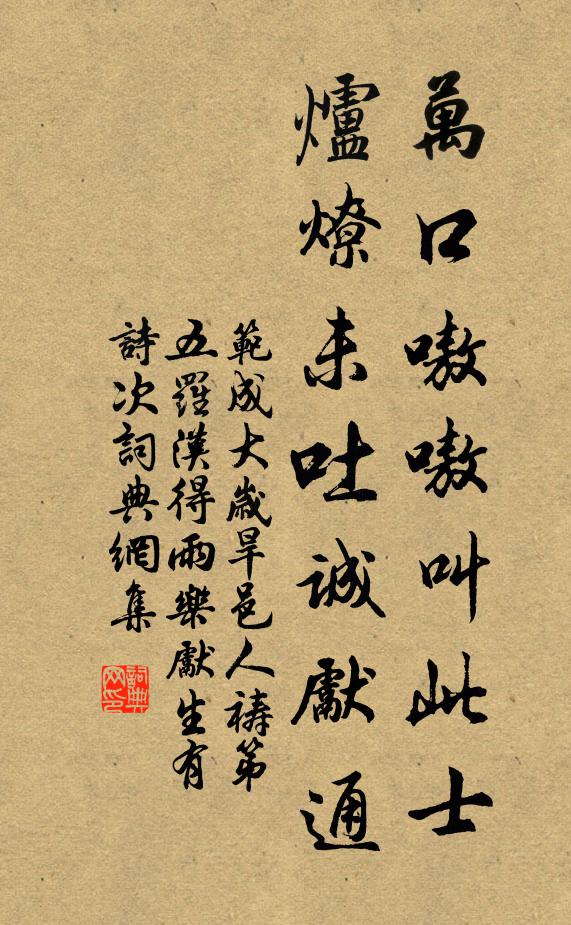 萬口嗷嗷叫此士
爐燎未吐誠獻通
範成大歲旱邑人禱第
五羅漢得雨樂獻生有
詩次詞典網集
詞典网印